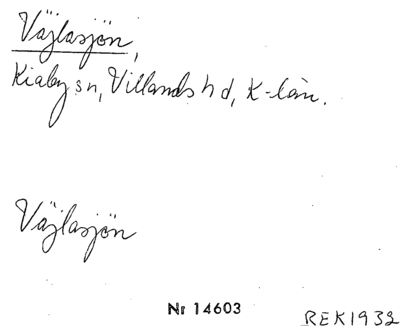 Väjlasjön,
Kiaby sn, Villands hd, K-län.
Väjlasjön
Nr 14603
REK1932